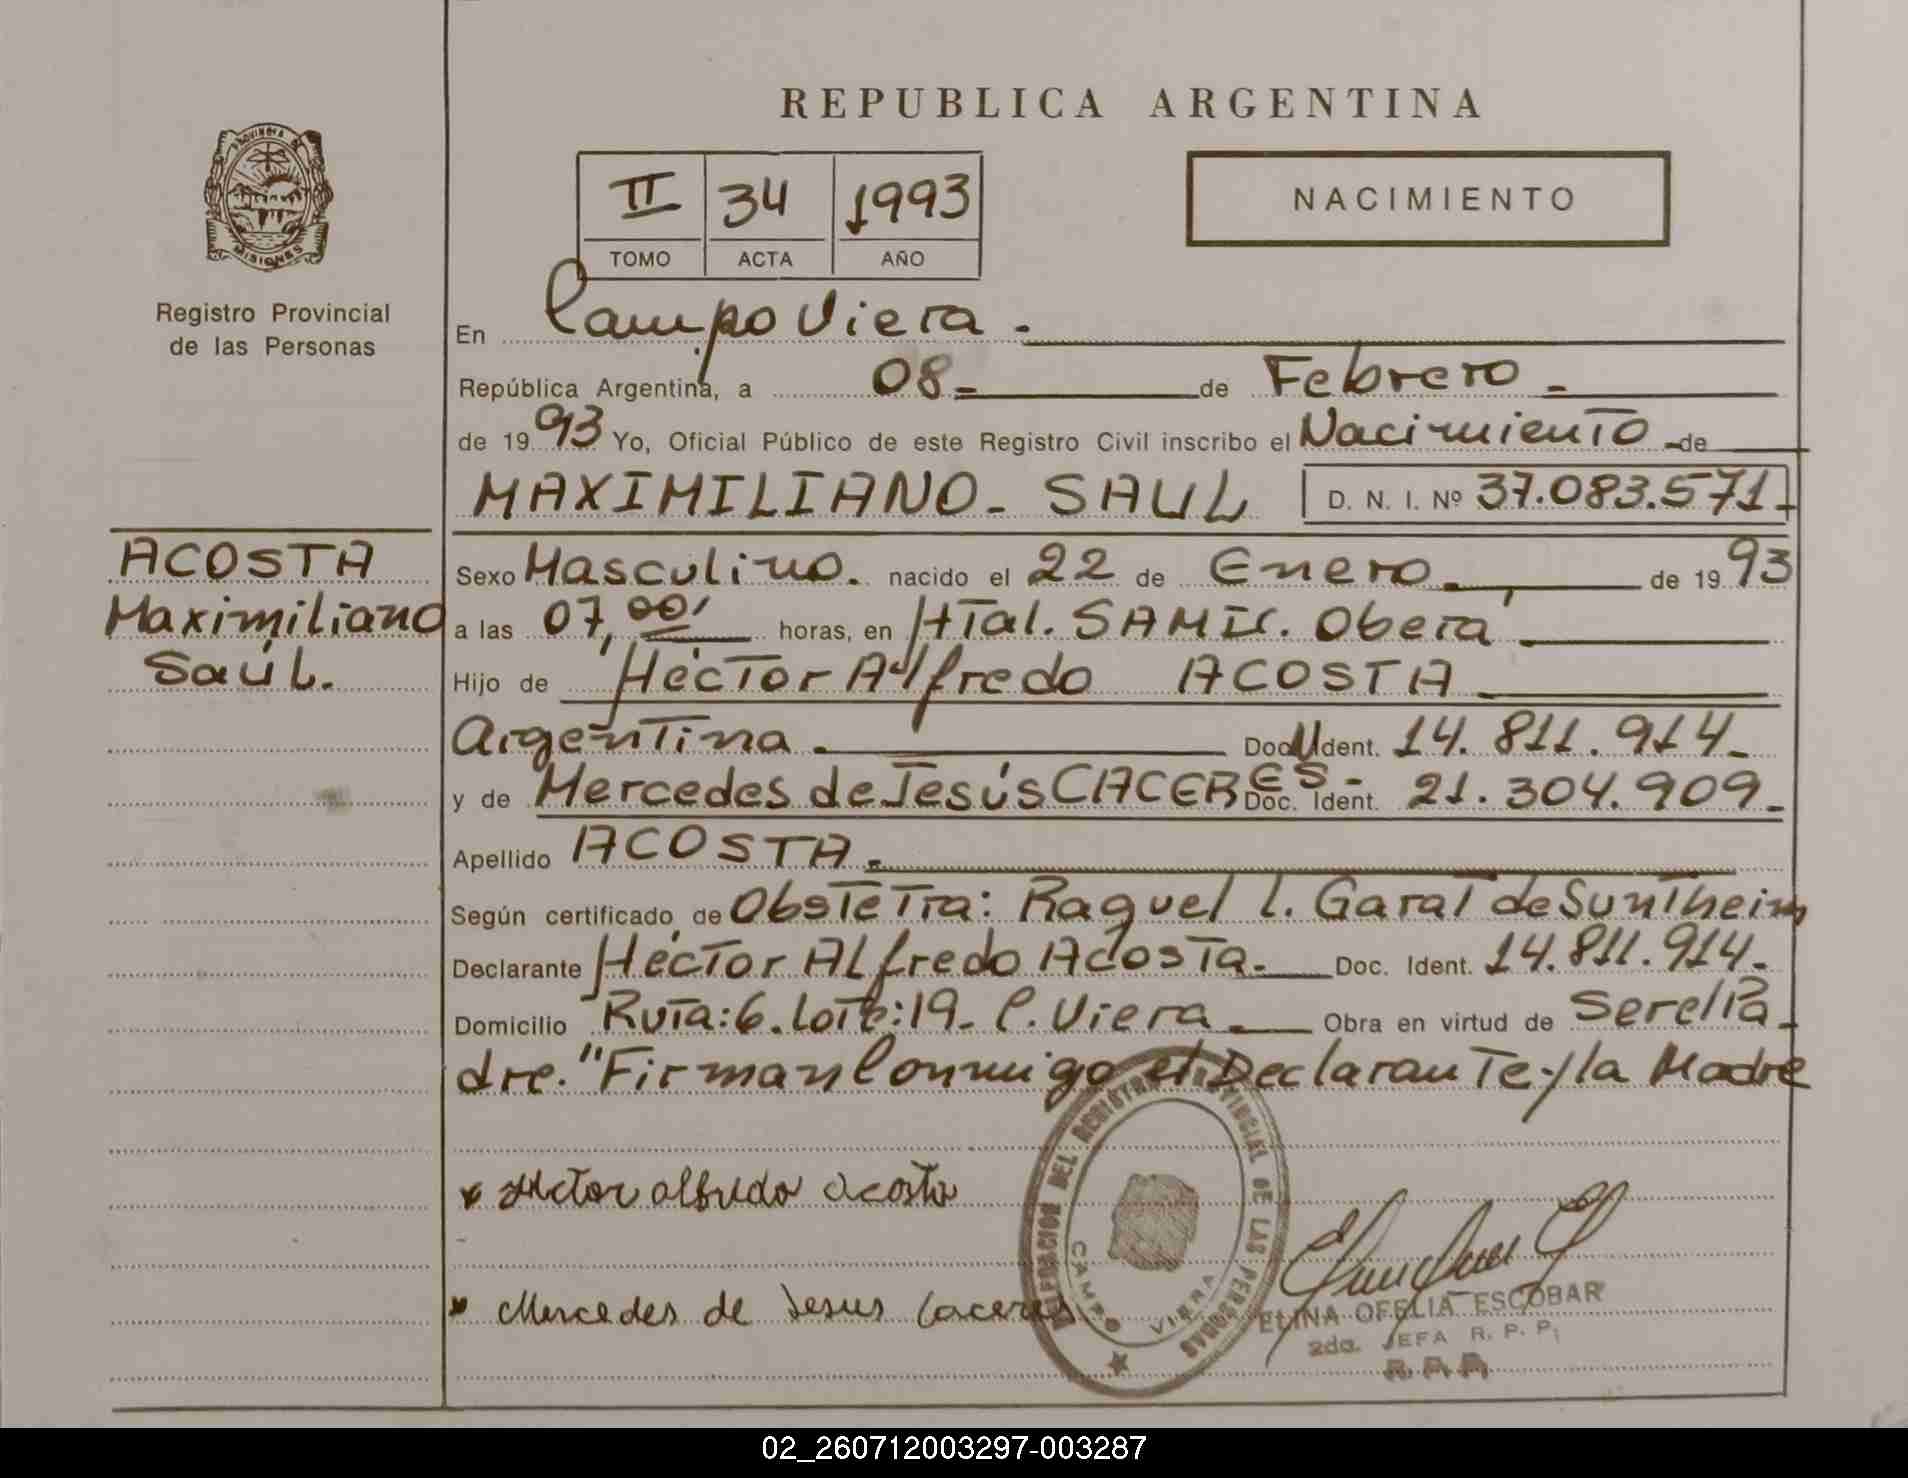 REPUBLICA ARGENTINA
PROVINCIA DE
MISIONES
Registro Provincial
de las Personas
II 34 1993
TOMO ACTA AÑO
NACIMIENTO
En Campo Viera.
República Argentina, a 08- de Febrero-
de 1993 Yo, Oficial Público de este Registro Civil inscribo el Nacimiento de
MAXIMILIANO- SAUL D. N. I. Nº 37.083.571-
ACOSTA
Maximiliano
Saúl.
Sexo Masculino. nacido el 22 de Enero. de 1993
a las 07,00' horas, en HTal. SAMIC. Oberá
Hijo de Héctor Alfredo ACOSTA
Argentina. Doc. U Ident. 14.811.914-
y de Mercedes de Jesús CACERES- Doc. Ident. 21.304.909-
Apellido ACOSTA.
Según certificado de Obstetra: Raquel L. Garat de Suntheim
Declarante Héctor Alfredo Acosta. Doc. Ident. 14.811.914-
Domicilio Ruta:6. Lote:19- C. Viera Obra en virtud de Ser el Pa-
dre. "Firman Conmigo el Declarante y la Madre
Hector alfredo acosta
Mercedes de Jesus Caceres
DELEGACION DEL REGISTRO PROVINCIAL DE LAS PERSONAS
CAMPO VIERA
ELINA OFELIA ESCOBAR
2da. JEFA R. P. P.
02_260712003297-003287